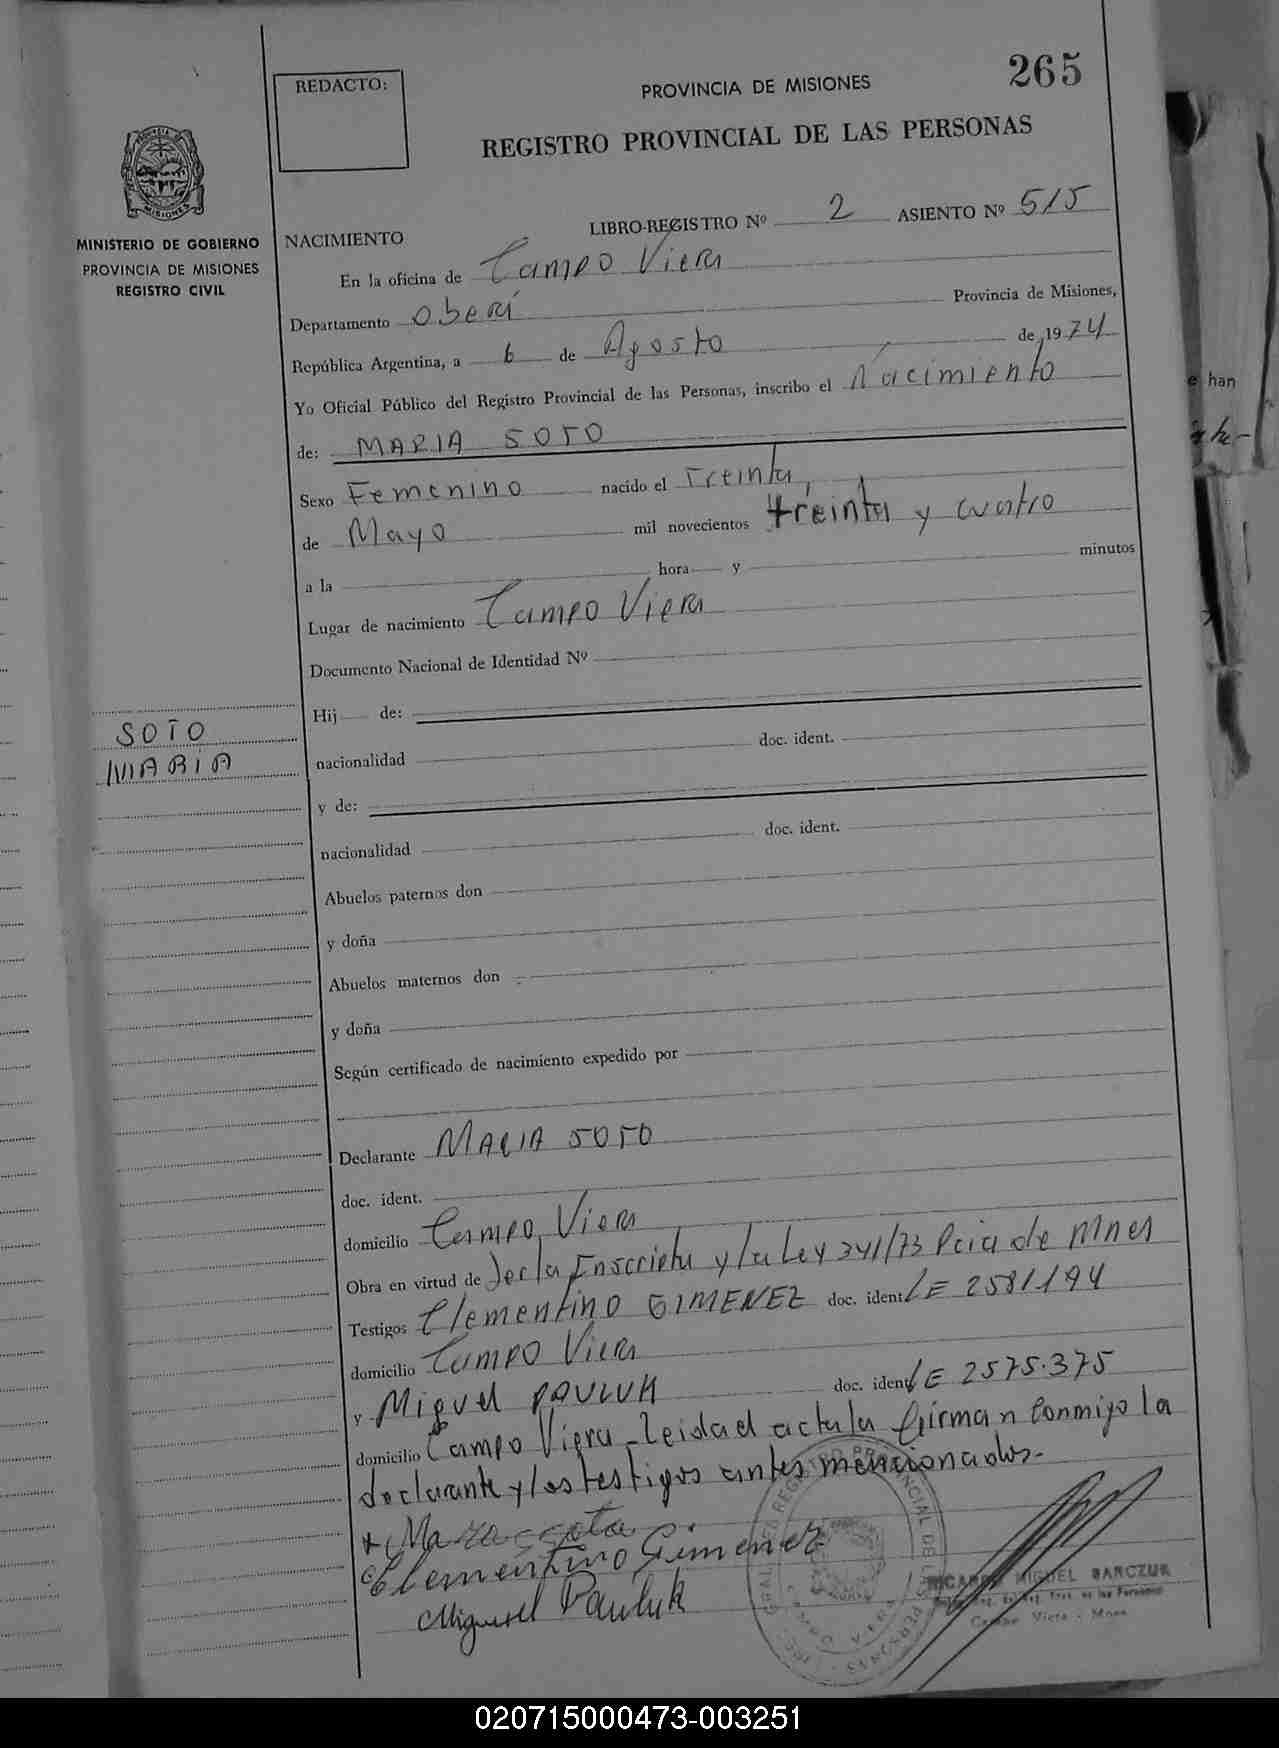 265
REDACTO:
PROVINCIA DE MISIONES
REGISTRO PROVINCIAL DE LAS PERSONAS
MINISTERIO DE GOBIERNO
PROVINCIA DE MISIONES
REGISTRO CIVIL
LIBRO-REGISTRO Nº 2 ASIENTO Nº 515
NACIMIENTO
En la oficina de Campo Viera
Departamento Oberá Provincia de Misiones,
República Argentina, a 6 de Agosto de 1974
Yo Oficial Público del Registro Provincial de las Personas, inscribo el Nacimiento
de: MARIA SOTO
Sexo Femenino nacido el Treinta,
de Mayo mil novecientos treinta y cuatro
a la hora y minutos
Lugar de nacimiento Campo Viera
Documento Nacional de Identidad Nº
Hij de:
SOTO
MARIA
nacionalidad doc. ident.
y de:
nacionalidad doc. ident.
Abuelos paternos don
y doña
Abuelos maternos don
y doña
Según certificado de nacimiento expedido por
Declarante MARIA SOTO
doc. ident.
domicilio Campo Viera
Obra en virtud de Ser la Inscripta y la Ley 341/73 Pcia de Mnes
Testigos Clementino GIMENEZ doc. ident. LE 2581.194
domicilio Campo Viera
y Miguel PAULUK doc. ident LE 2575.375
domicilio Campo Viera - Leida el acta la firman conmigo la
declarante y los testigos antes mencionados.-
Clementino Gimenez
Miguel Pauluk
MIGUEL BARCZUK
Campo Viera - Mnes
e han
020715000473-003251